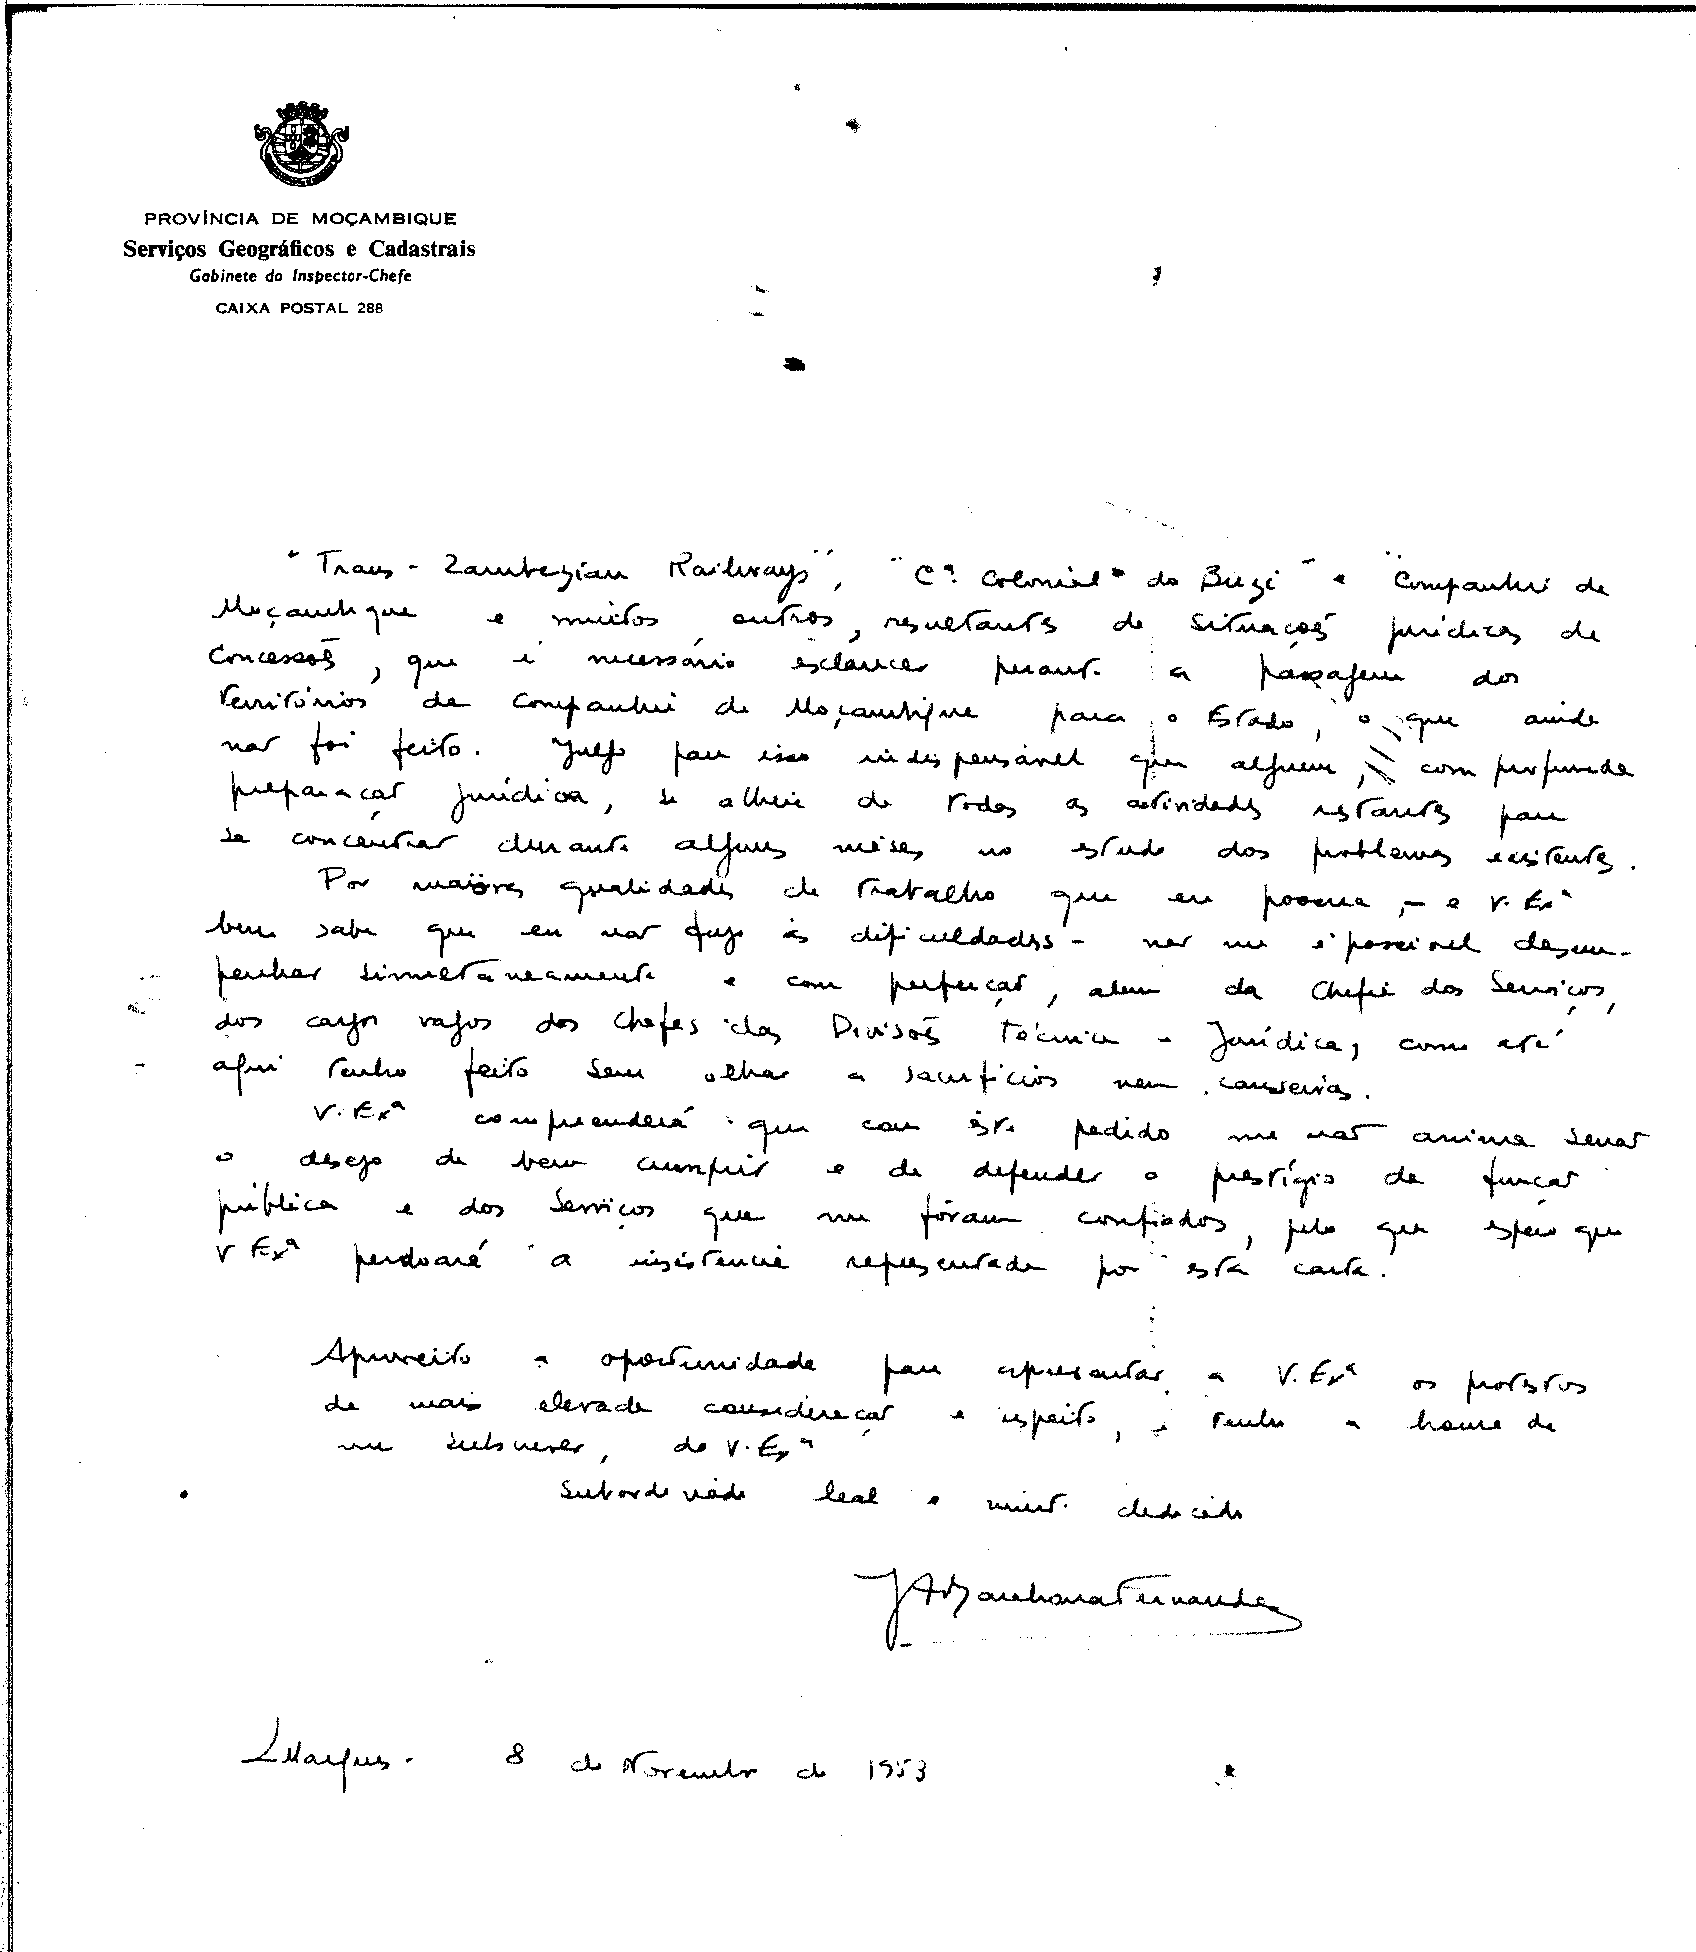 PROVÍNCIA DE MOÇAMBIQUE
Serviços Geográficos e Cadastrais
Gabinete do Inspector-Chefe
CAIXA POSTAL 288
"Trans-Zambezian Railways", "Cª. Colonial" do Buzi" e "Companhia de
Moçambique e muitos outros, resultantes de situações jurídicas de
Concessões, que é necessário esclarecer perante a passagem dos
territórios da Companhia de Moçambique para o Estado, o que ainda
não foi feito. Julgo para isso indispensável que alguem, com profunda
preparação jurídica, se alheie de todas as actividades restantes para
se concentrar durante alguns mêses no estudo dos problemas existentes.
Por maiores qualidades de trabalho que eu possua, - e V. Exª
bem sabe que eu não fujo às dificuldades - não me é possivel desem-
penhar simultaneamente e com perfeição, alem da Chefia dos Serviços,
dos cargos vagos dos Chefes das Divisões Técnica e Jurídica, como até
aqui tenho feito sem olhar a sacrificios nem canseiras.
V. Exª compreenderá que com êste pedido me não anima senão
o desejo de bem cumprir e de defender o prestígio da função
pública e dos Serviços que me fôram confiados, pelo que espero que
V Exª perdoará a insistencia representada por esta carta.
Aproveito a oportunidade para apresentar a V. Exª os protestos
da mais elevada consideração e respeito, e tenho a honra de
me subscrever, de V. Exª
Subordinado leal e muito dedicado
Fernandes
LMarques. 8 de Novembro de 1953